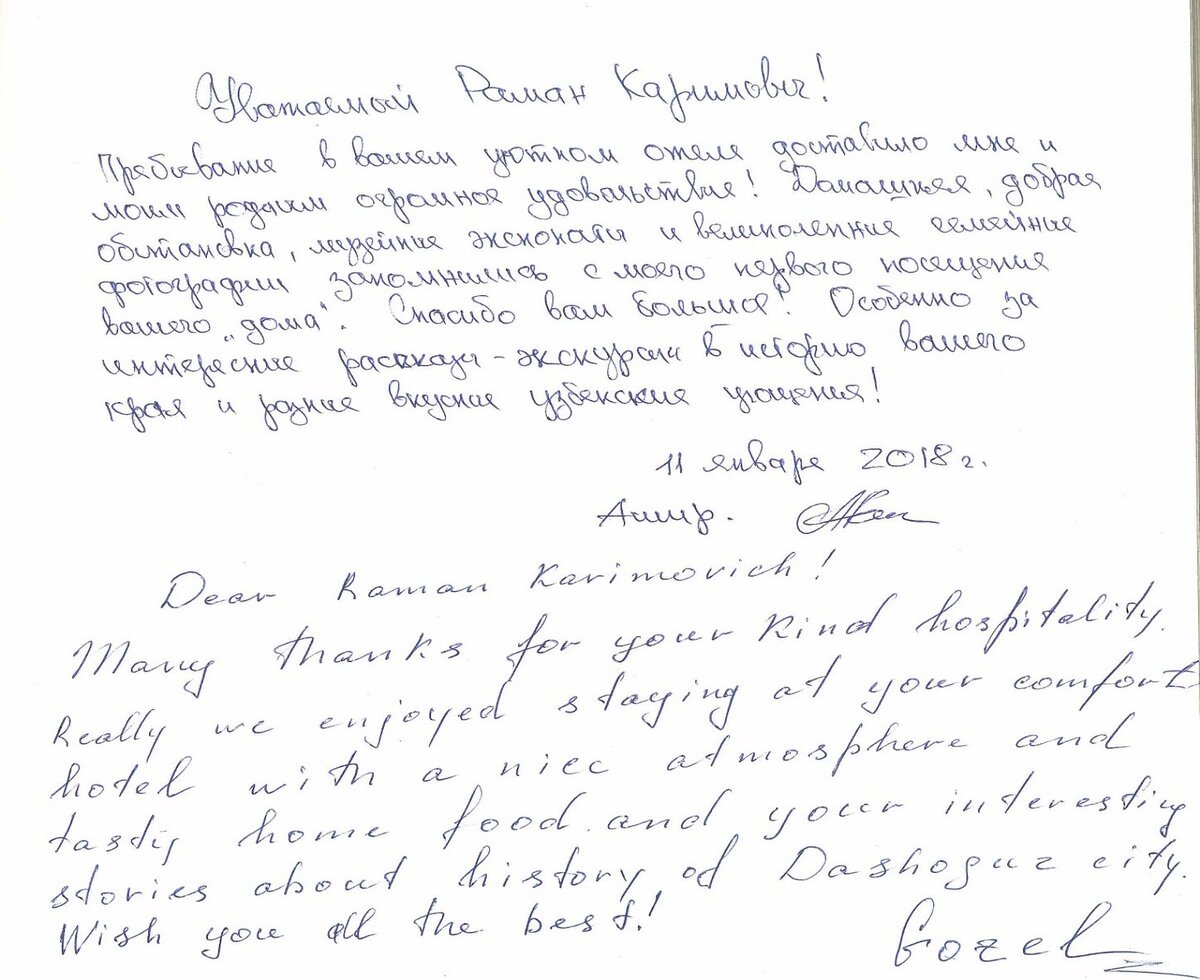 Уважаемый Раман Каримович!
Пребывание в вашем уютном отеле доставило мне и
моим родным огромное удовольствие! Домашняя, добрая
обстановка, музейные экспонаты и великолепные семейные
фотографии запомнились с моего первого посещения
вашего „дома“. Спасибо вам большое! Особенно за
интересные рассказы-экскурсы в историю вашего
края и разные вкусные узбекские угощения!
11 января 2018 г.
Ашир.
Dear Raman Karimovich!
Many thanks for your kind hospitality.
Really we enjoyed staying at your comfort
hotel with a nice atmosphere and
tasty home food and your interesting
stories about history of Dashoguz city.
Wish you all the best!
Gozel